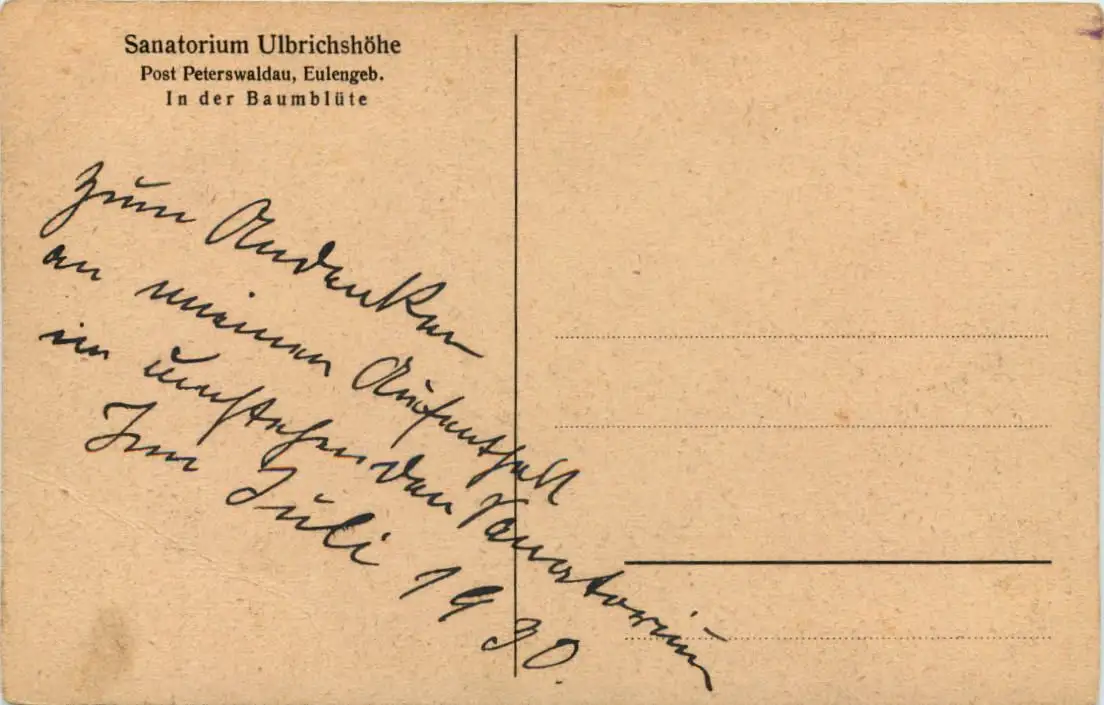 Sanatorium Ulbrichshöhe
Post Peterswaldau, Eulengeb.
In der Baumblüte
Zum Andenken
an meinen Aufenthalt
im umstehenden Sanatorium
Im Juli 1930.